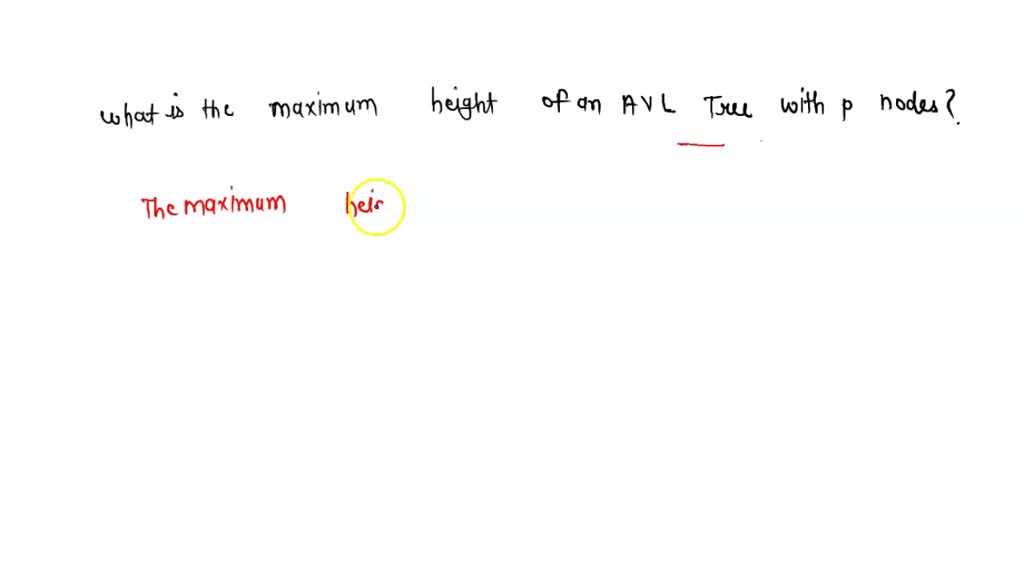 what is the maximum height of an AVL Tree with p nodes?
The maximum hei